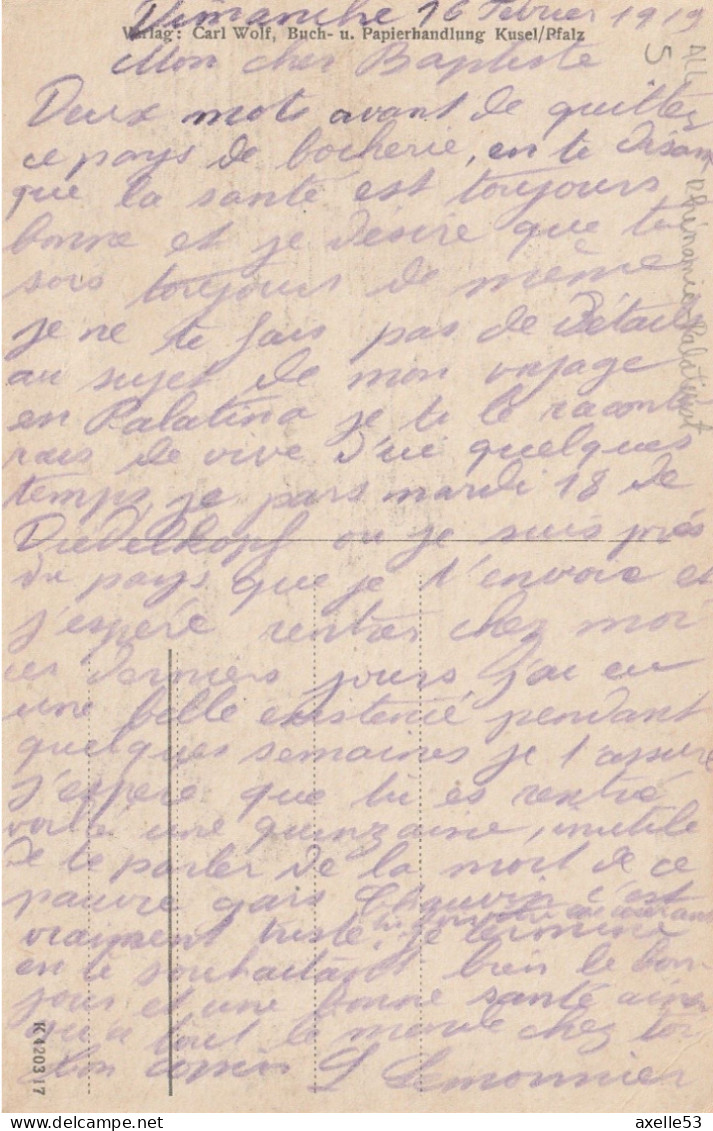 Dimanche 16 Février 1919
Verlag: Carl Wolf, Buch- u. Papierhandlung Kusel/Pfalz
Mon cher Baptiste
Deux mots avant de quitter
ce pays de bocherie, en te disant
que la santé est toujours
bonne et je désire que tu
sois toujours de même
je ne te fais pas de détails
au sujet de mon voyage
en Palatina je te le racont
rais de vive d'ici quelques
temps, je pars mardi 18 de
Diedelkopf ou je suis près
du pays que je t'envoie et
j'espère rentrer chez moi
ces derniers jours j'ai eu
une belle existence pendant
quelques semaines je t'assure
j'espère que tu es rentré
voila une quinzaine, inutile
de te parler de la mort de ce
pauvre gars Chauvin c'est
vraiment triste, je termine
tu dois être au courant
en te souhaitant bien le bon
jour et une bonne santé ainsi
qu'a tout le monde chez toi
Ton cousin L Lemonnier
K 4203 17
ALL
5
Rhénanie-Palatinat
axelle53